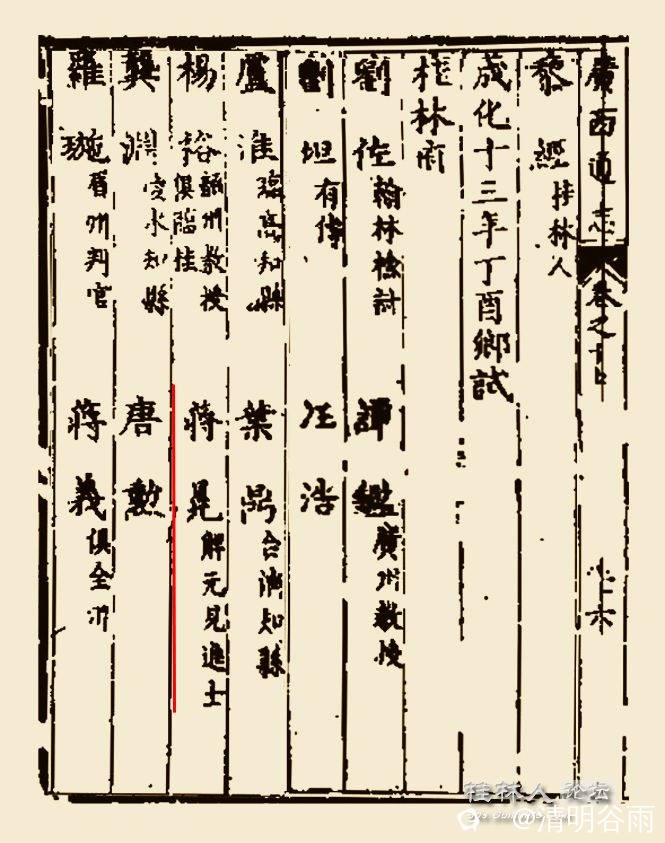 廣西通志 卷之十 六
黎經 桂林人
成化十三年丁酉鄉試
桂林府
劉佐 翰林檢討 譚鑑 廣州教授
劉坦 有傳 汪浩
盧淮 臨高知縣 葉鼎 合浦知縣
楊裕 韶州教授 俱臨桂 蔣冕 解元見進士
龔淵 陵水知縣 唐勳
羅璇 眉州判官 蔣義 俱全州
桂林人论坛
@清明谷雨